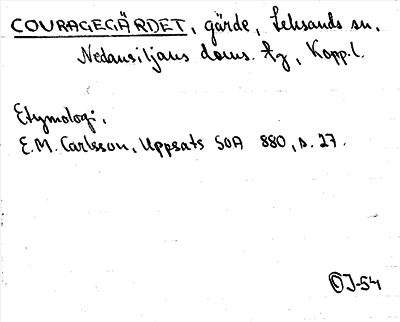 COURAGEGÄRDET, gärde, Leksands sn,
Nedansiljans doms. tg, Kopp.l.
Etymologi.
E.M. Carlsson, Uppsats SOA 880, s. 27.
OJ-54